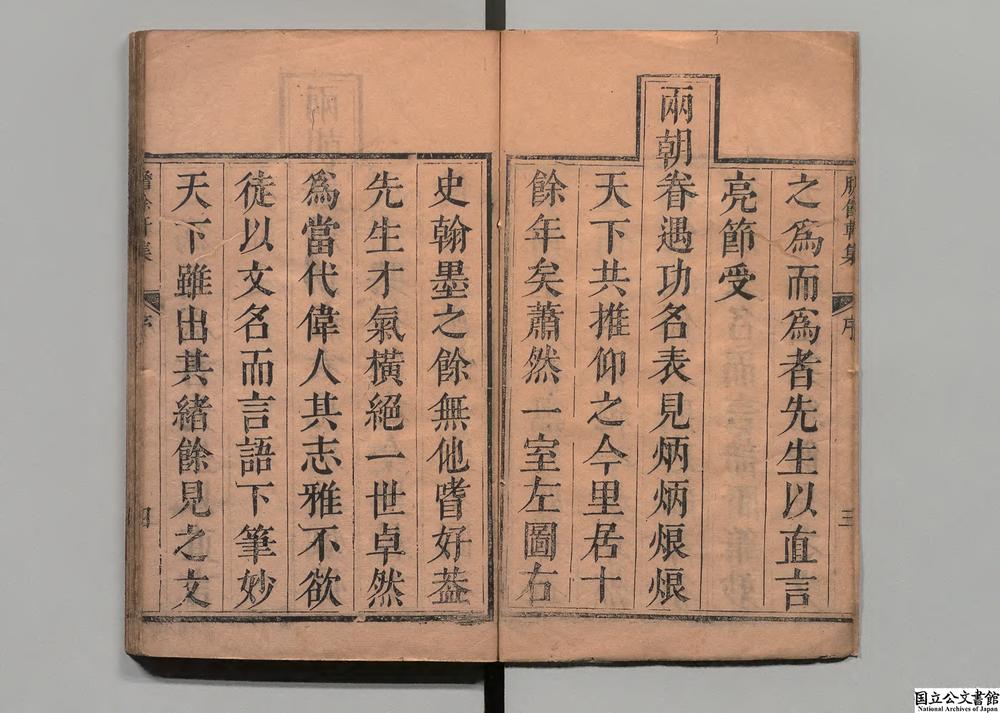 之爲而爲者先生以直言
亮節受
兩朝眷遇功名表見炳炳烺烺
天下共推仰之今里居十
餘年矣蕭然一室左圖右
史翰墨之餘無他嗜好葢
先生才氣橫絕一世卓然
爲當代偉人其志雅不欲
徒以文名而言語下筆妙
天下雖出其緒餘見之文
序
三
序
四
国立公文書館
National Archives of Japan